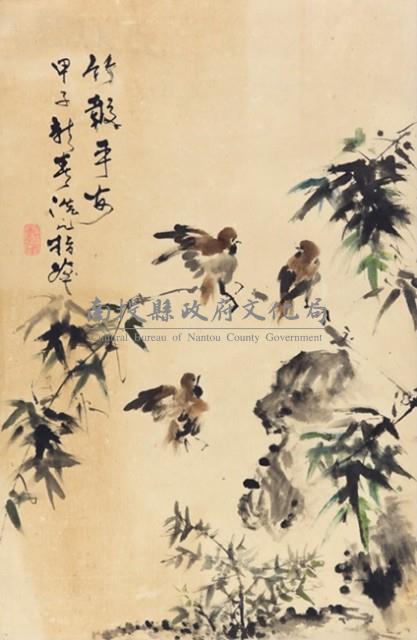 竹報平安
甲子新春浩然指墨
南投縣政府文化局
Cultural Bureau of Nantou County Government